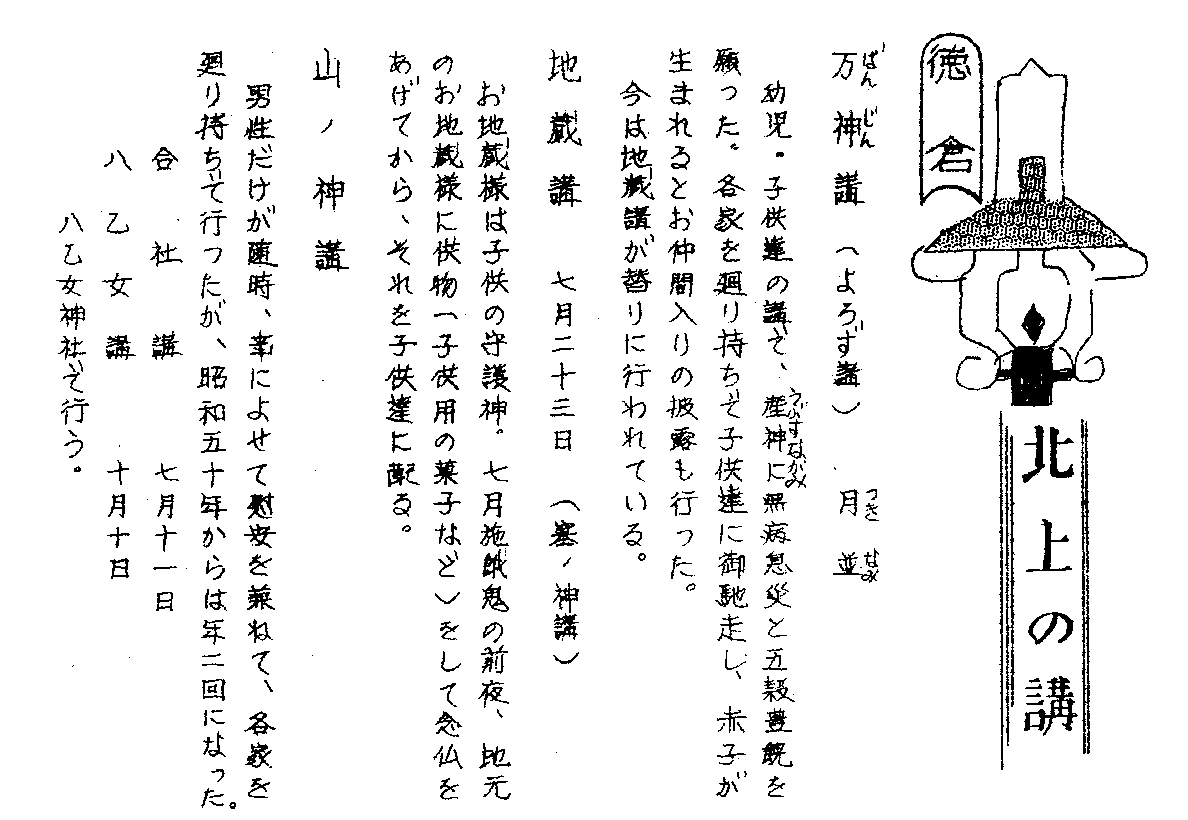 徳倉
北上の講
万神講（よろず講） 月並
ばんじん
つきなみ
幼児・子供達の講で、産神に無病息災と五穀豊饒を
うぶすながみ
願った。各家を廻り持ちで子供達に御馳走し、赤子が
生まれるとお仲間入りの披露も行った。
今は地蔵講が替りに行われている。
地蔵講 七月二十三日 （塞ノ神講）
お地蔵様は子供の守護神。七月施餓鬼の前夜、地元
のお地蔵様に供物（子供用の菓子など）をして念仏を
あげてから、それを子供達に配る。
山ノ神講
男性だけが随時、事によせて慰安を兼ねて、各家を
廻り持ちで行ったが、昭和五十年からは年二回になった。
合社講 七月十一日
八乙女講 十月十日
八乙女神社で行う。